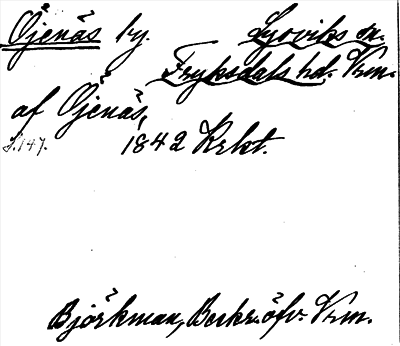 Öjenäs by. Lysviks sn.
Fryksdals hd. Vrm.
af Öjenäs,
S. 147. 1842 Krbt.
Björkman, Beskr. öfv. Vrm.